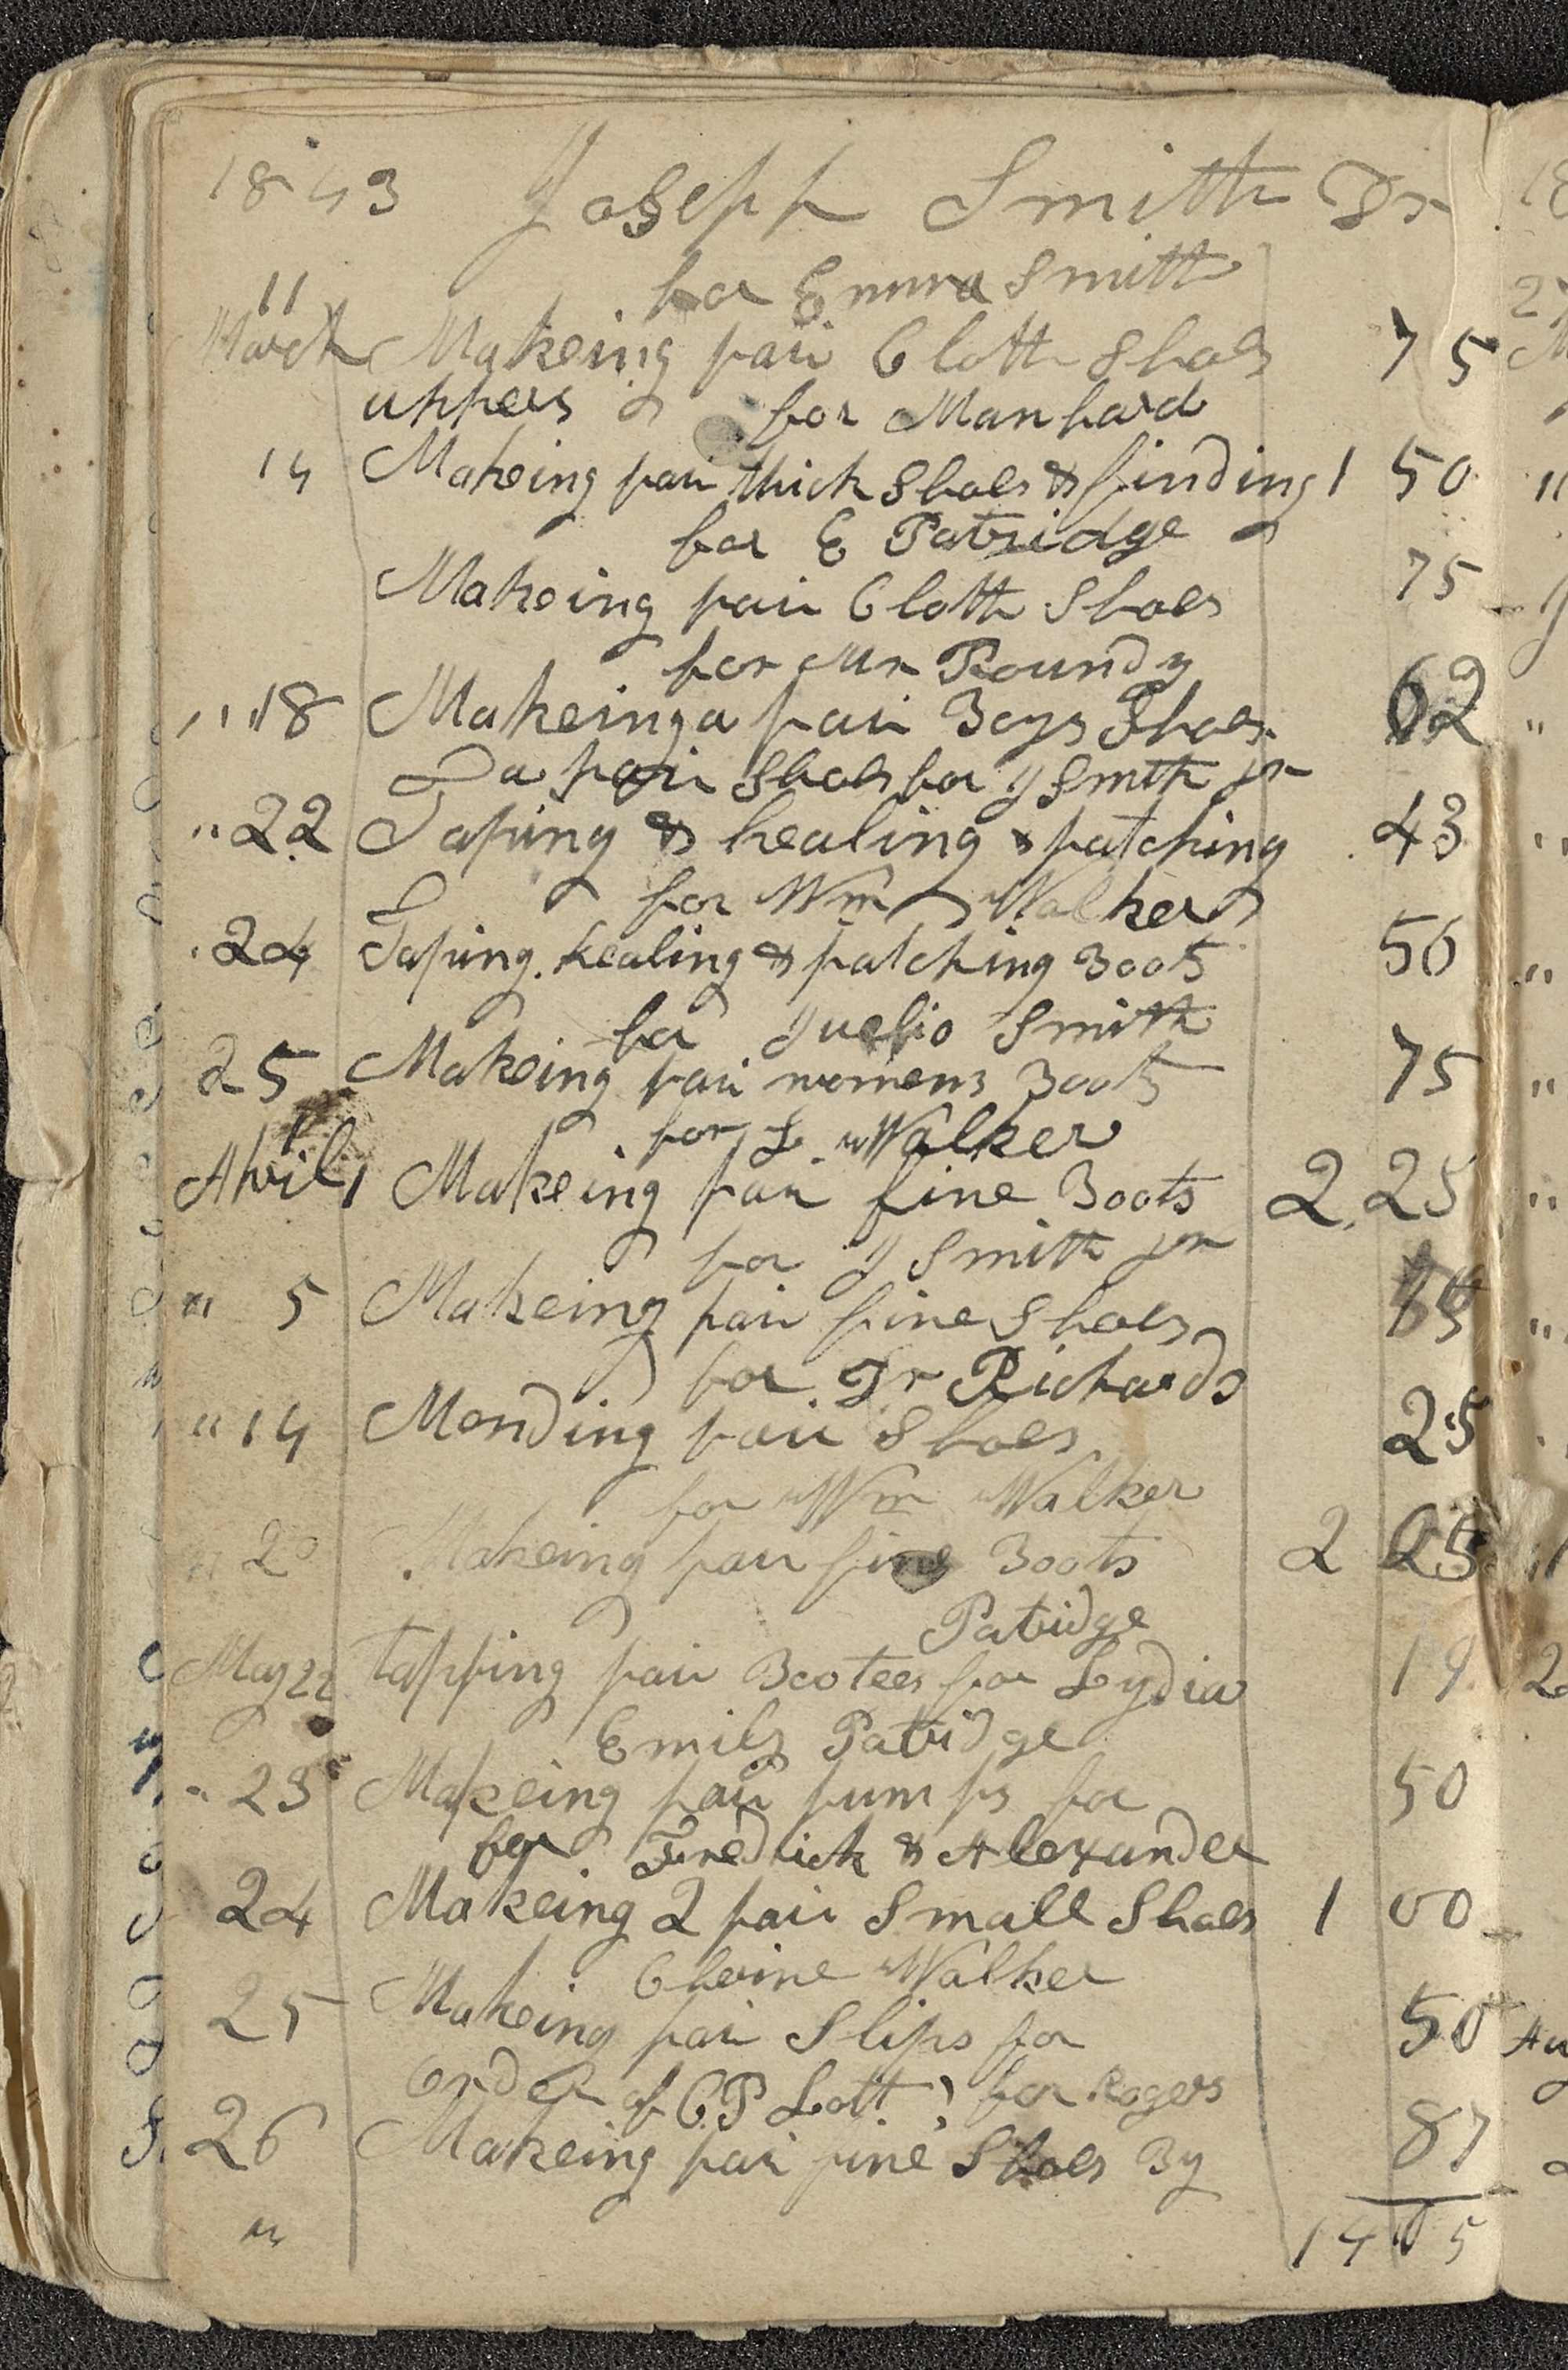 1843 Joseph Smith Dr
for Emma Smith
11
March Makeing pair Cloth Shoes 75
uppers for Manhard
14 Makeing pair thick Shoes & finding 1 50
for E Patridge
Makeing pair Cloth Shoes 75
for Mr Roundy
" " 18 Makeing a pair Boys Shoes 62
a pair Shoes for J Smith jr
" 22 Taping & healing & patching 43
for Wm Walker
" 24 Taping healing & patching Boots 50
for Smith
25 Makeing pair womens Boots 75
for L Walker
April 1 Makeing pair fine Boots 2 25
for J Smith jr
" 5 Makeing pair fine Shoes
for Dr Richards
" 14 Mending pair Shoes 25
for Wm Walker
" 20 Makeing pair fine Boots 2 25
Patridge
May 22 tapping pair Bootees for Lydia 19
Emily Patridge
" 23 Makeing pair pumps for 50
for Fredrick & Alexander
24 Makeing 2 pair Small Shoes 1 00
Walker
25 Makeing pair Slips for 50
order of C P Lott for Rogers
26 Makeing pair fine Shoes By 87
"
14 05